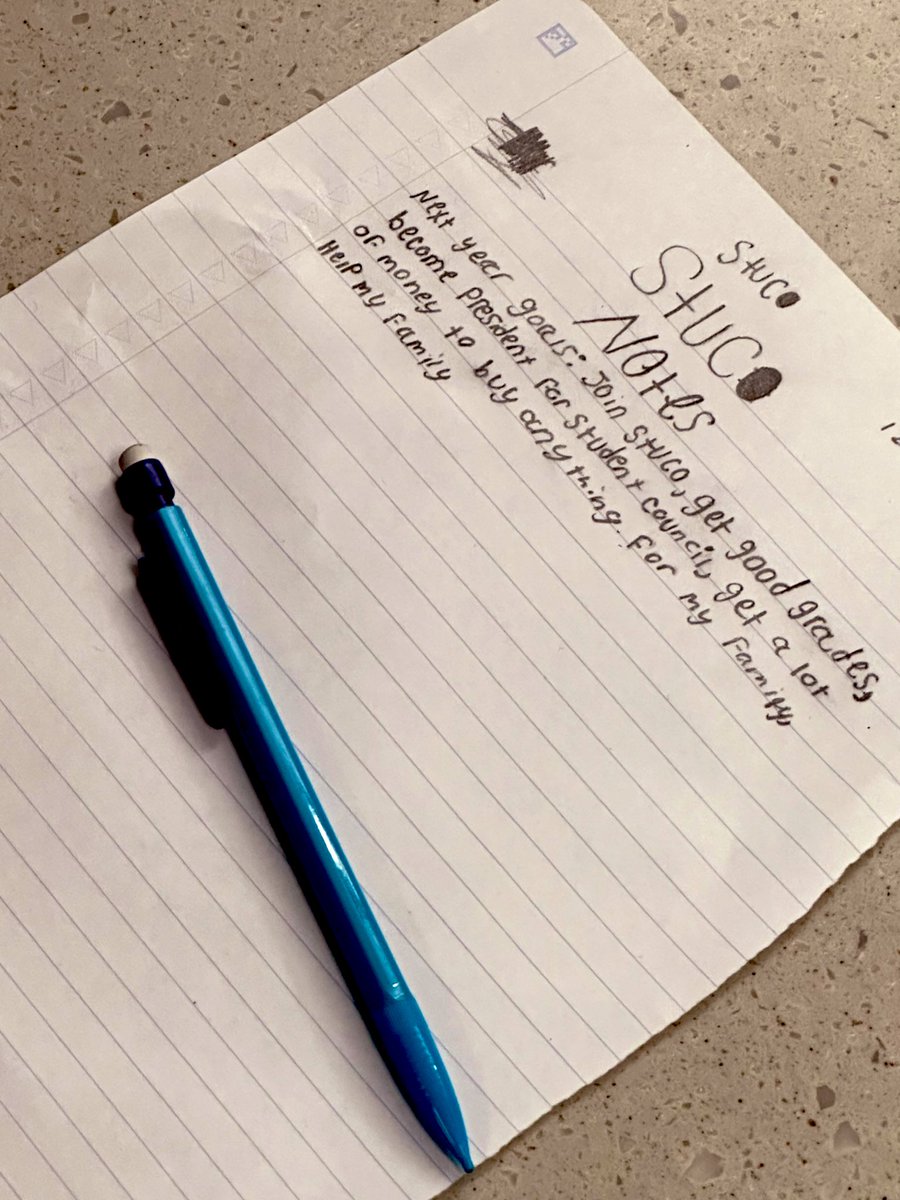 STUCO
STUCO
Notes
Next year goals: Join STUCO, get good grades,
become president for student council, get a lot
of money to buy anything for my family,
Help my family